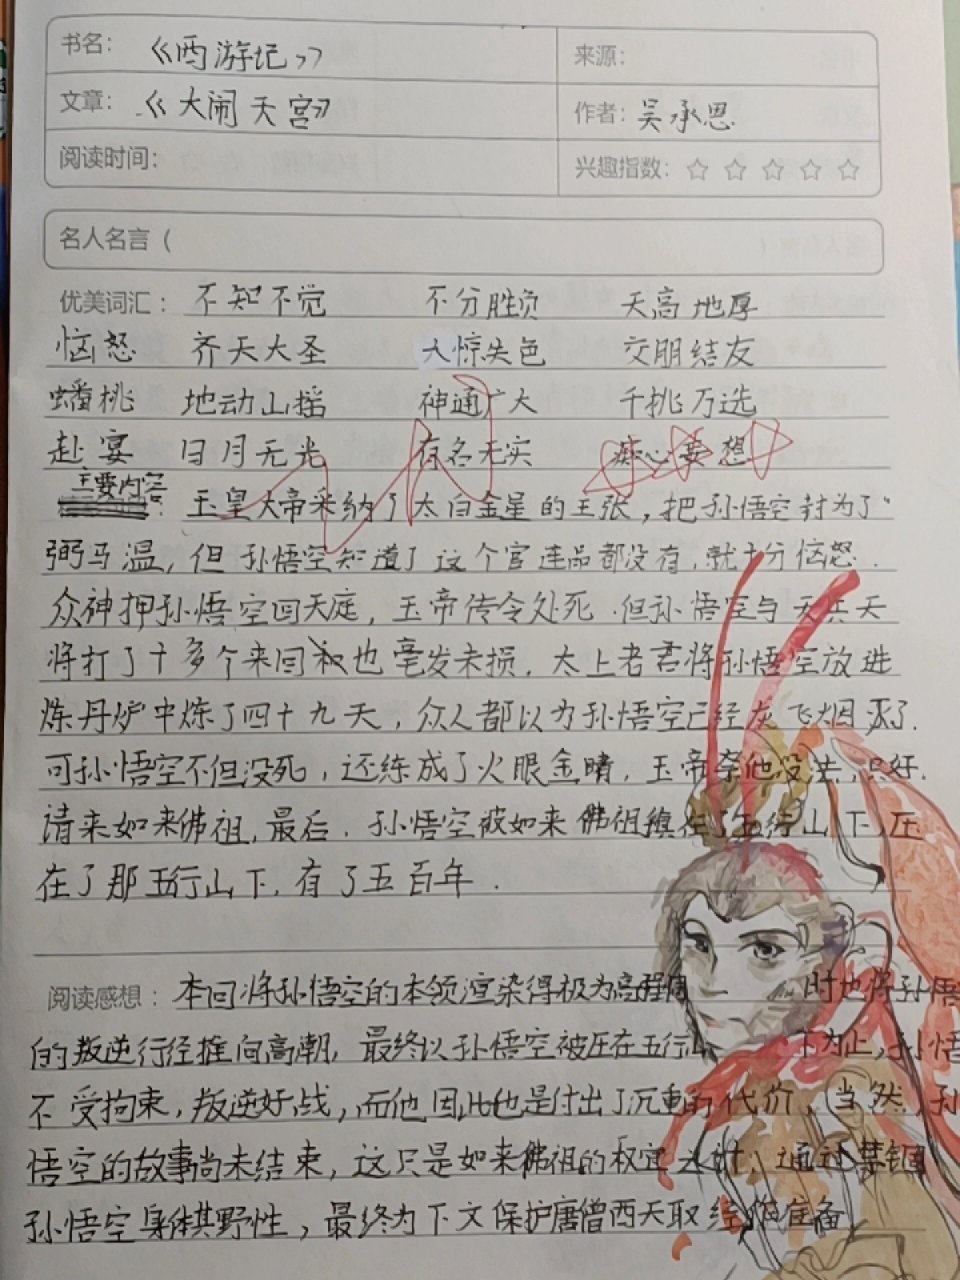 书名: 《西游记》
来源:
文章: 《大闹天宫》
作者: 吴承恩
阅读时间:
兴趣指数: ☆ ☆ ☆ ☆ ☆
名人名言 (
优美词汇: 不知不觉 不分胜负 天高地厚
恼怒 齐天大圣 大惊失色 交朋结友
蟠桃 地动山摇 神通广大 千挑万选
赴宴 日月无光 有名无实 痴心妄想
主要内容: 玉皇大帝采纳了太白金星的主张,把孙悟空封为了“
弼马温,但孙悟空知道了这个官连品都没有,就十分恼怒.
众神押孙悟空回天庭,玉帝传令处死.但孙悟空与天兵天
将打了十多个来回 也毫发未损.太上老君将孙悟空放进
炼丹炉中炼了四十九天,众人都以为孙悟空已经灰飞烟灭了.
可孙悟空不但没死,还练成了火眼金睛,玉帝拿他没法,只好.
请来如来佛祖,最后.孙悟空被如来佛祖 在了五行山下,压
在了那五行山下,有了五百年.
阅读感想: 本回将孙悟空的本领渲染得极为高强 时也将孙悟
的叛逆行径推向高潮,最终以孙悟空被压在五行山 下为止,孙悟
不受拘束,叛逆好战,而他因此也是付出了沉重的代价,当然,孙
悟空的故事尚未结束,这只是如来佛祖的权宜之计,通过禁锢
孙悟空身体其野性,最终为下文保护唐僧西天取经做准备